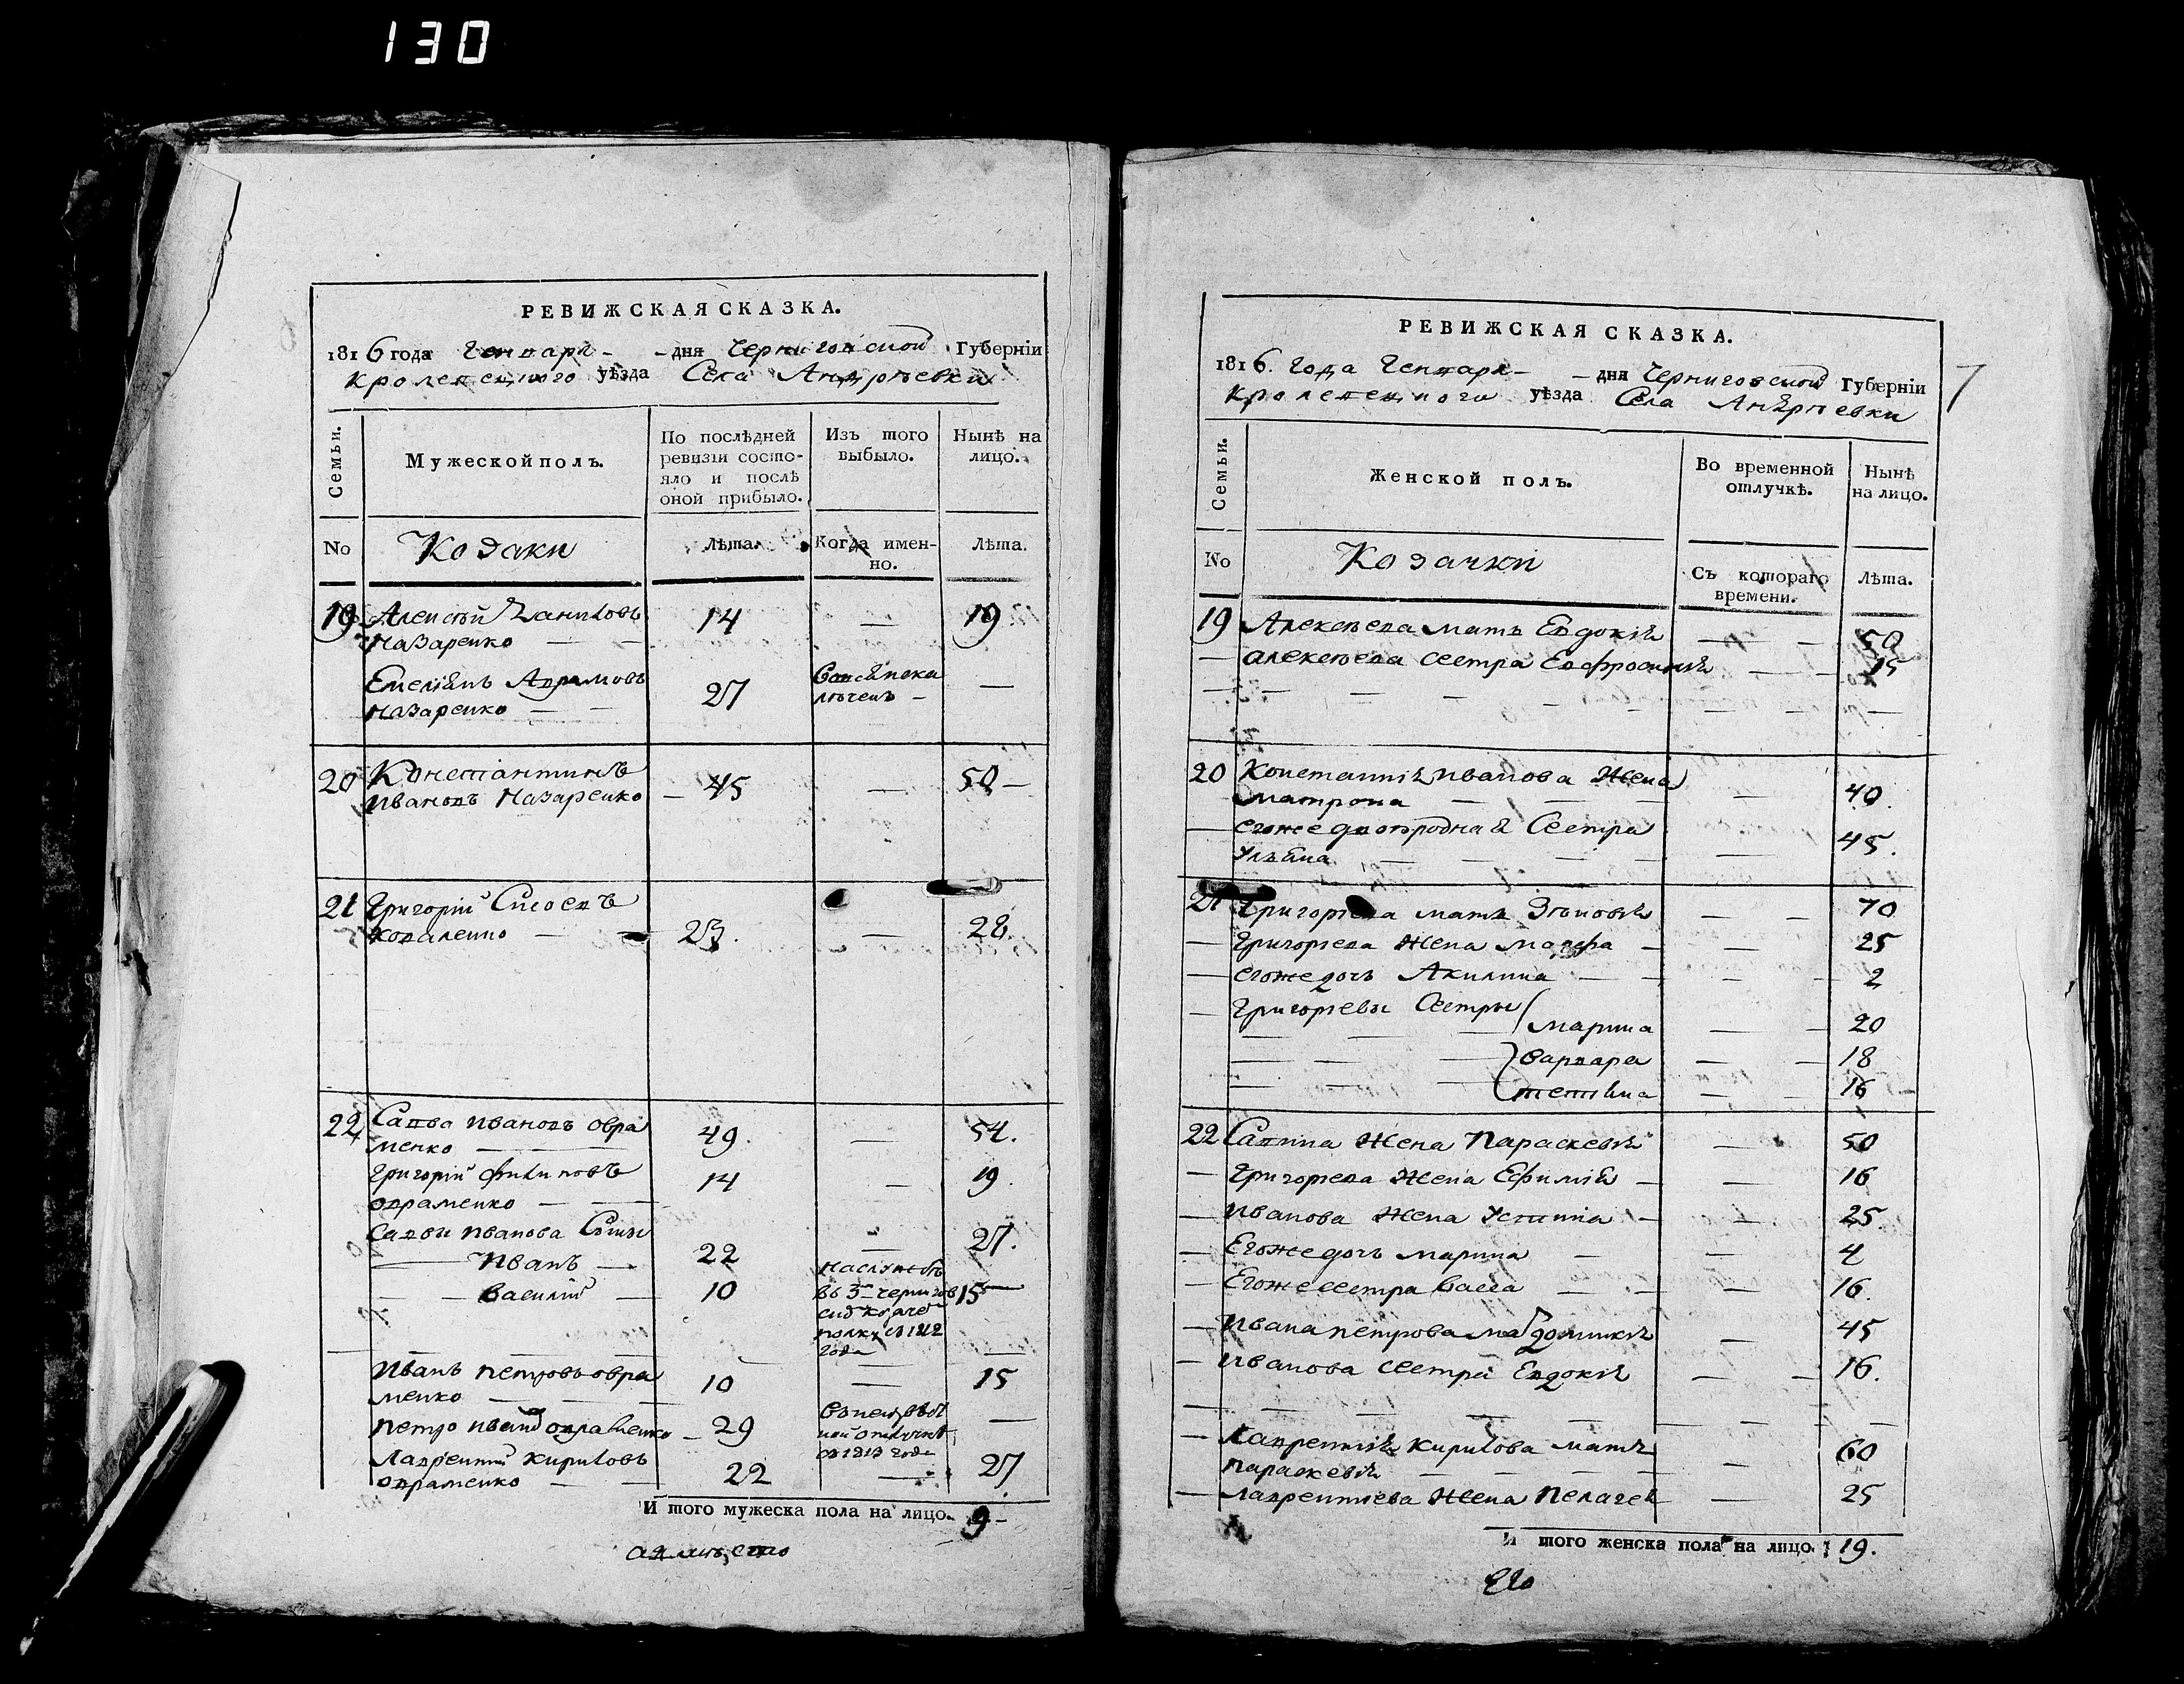 130
РЕВИЖСКАЯ СКАЗКА.
1816 года Генваря - - дня Черниговской Губерніи
Кролевецкого уѣзда Села Андрѣевки
Семьи.
Мужеской полъ.
По послѣдней ревизіи состояло и послѣ оной прибыло.
Изъ того выбыло.
Нынѣ на лицо.
No
Козаки
Лѣта.
Когда именно.
Лѣта.
19 Алексѣй Даниловъ 14 — 19
Назаренко — —
Емелянъ Аврамовъ 27 —
Назаренко — —
20 Константинъ — 45 — 50 —
Ивановъ Назаренко
21 Григорій 23. — 28.
Коваленко — —
22 Савва Ивановъ Овра 49. — 54.
менко —
Григорій Филиповъ 14 — 19.
Овраменко — —
Саввы Иванова Сыны
— Иванъ — 22 — 27.
— — Василій — 10 15
въ 3 - чернигов
полку съ 1812
года
Иванъ Петровъ Овра 10 — 15
менко —
Петро Овраменко — 29 —
съ 1813 года
Лаврентій Кириловъ 22 — 27
Овраменко — —
И того мужеска пола на лицо. 9 -
РЕВИЖСКАЯ СКАЗКА.
1816. Года Генваря - - дня Черниговской Губерніи
Кролевецкого уѣзда Села Андрѣевки
7
Семьи.
Женской полъ.
Во временной отлучкѣ.
Нынѣ на лицо.
No
Козачки
Съ котораго времени.
Лѣта.
19 Алексѣева мать Евдокія — — 50
— Алексѣева сестра Евфросинія — — 15
20 Константина Иванова Жена
Матрона — — 40.
— Егоже двоюродная Сестра
Уляна — — 45.
21 Григорьева мать Зѣновія — — 70
— Григорьева Жена Марфа — — 25
— Егоже дочь Акилина — — 2
— Григорьевы Сестры
Марина — — 20
Варвара — — 18
Тетяна — — 16
22 Саввина Жена Параскевія — 50
— Григорьева Жена Ефимія — — 16
— Иванова Жена Устина — — 25
— Егоже дочь Марина — — 4
— Егоже сестра Васса — — 16.
— Ивана Петрова мать Домникія — 45
— Иванова сестра Евдокія — — 16.
— Лаврентія Кирилова мать
Параскевія — — 60
— Лаврентіева Жена Пелагея — 25
И того женска пола на лицо. 19.